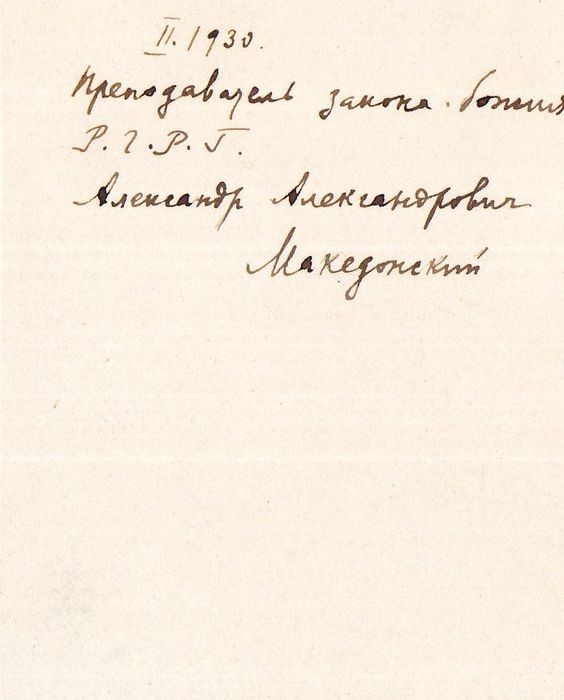 II. 1930.
Преподаватель закона божия
Р. Г. Р. Г.
Александр Александрович
Македонский